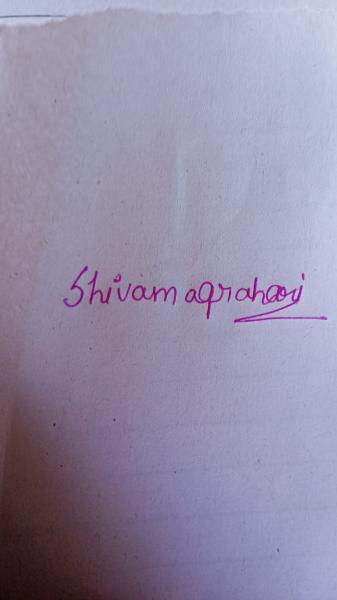 Shivam agrahari